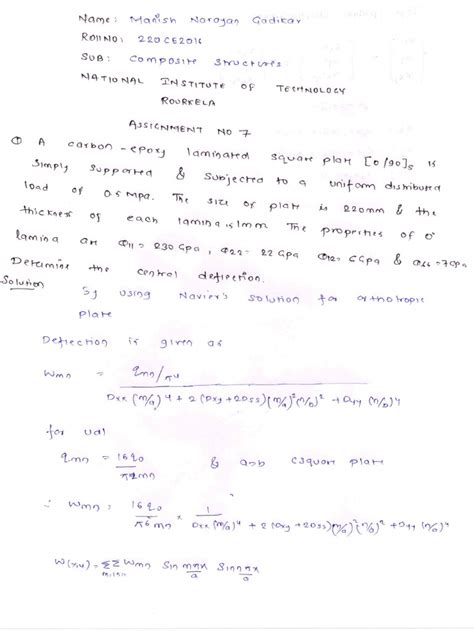 Name: Manish Narayan Gadikar
Roll NO: 220CE2016
SUB: Composite structures
NATIONAL INSTITUTE OF TECHNOLOGY
ROURKELA
ASSIGNMENT NO 7
① A carbon-epoxy laminated square plate [0/90]s is
simply supported & subjected to a uniform distributed
load of 0.5 Mpa. The size of plate is 220mm & the
thickness of each lamina is 1mm The properties of 0°
lamina are Q11 = 230 Gpa, Q22 = 22 Gpa Q12 = 6 Gpa & Q66 = 7 Gpa
Determine the central deflection.
Solution
By using Navier's solution for orthotropic
plate
Deflection is given as
Wmn = qmn/π⁴ / Dxx (m/a)⁴ + 2 (Dxy + 2Dss) (m/a)² (n/b)² + Dyy (n/b)⁴
for udl
qmn = 16q0 / π²mn & a=b (square plate
∴ Wmn = 16q0 / π⁶mn × 1 / Dxx (m/a)⁴ + 2 (Dxy + 2Dss) (m/a)² (n/b)² + Dyy (n/b)⁴
W(x,y) = ΣΣ Wmn Sin mπx/a Sin nπx/a